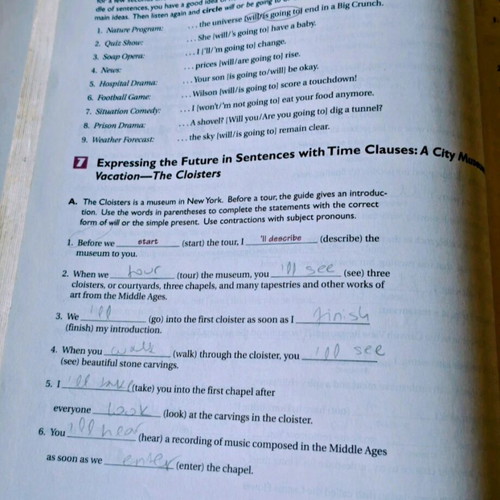 dle of sentences, you have a good idea
main ideas. Then listen again and circle will or be going to
1. Nature Program: . . . the universe [will/is going to] end in a Big Crunch.
2. Quiz Show: . . . She [will/'s going to] have a baby.
3. Soap Opera: . . . I ['ll/'m going to] change.
4. News: . . . prices [will/are going to] rise.
5. Hospital Drama: . . . Your son [is going to/will] be okay.
6. Football Game: . . . Wilson [will/is going to] score a touchdown!
7. Situation Comedy: . . . I [won't/'m not going to] eat your food anymore.
8. Prison Drama: . . . A shovel? [Will you/Are you going to] dig a tunnel?
9. Weather Forecast: . . . the sky [will/is going to] remain clear.
7 Expressing the Future in Sentences with Time Clauses: A City
Vacation—The Cloisters
A. The Cloisters is a museum in New York. Before a tour, the guide gives an introduc-
tion. Use the words in parentheses to complete the statements with the correct
form of will or the simple present. Use contractions with subject pronouns.
1. Before we start (start) the tour, I 'll describe (describe) the
museum to you.
2. When we tour (tour) the museum, you 'll see (see) three
cloisters, or courtyards, three chapels, and many tapestries and other works of
art from the Middle Ages.
3. We 'll (go) into the first cloister as soon as I finish
(finish) my introduction.
4. When you walk (walk) through the cloister, you 'll see
(see) beautiful stone carvings.
5. I 'll take (take) you into the first chapel after
everyone look (look) at the carvings in the cloister.
6. You 'll hear (hear) a recording of music composed in the Middle Ages
as soon as we enter (enter) the chapel.